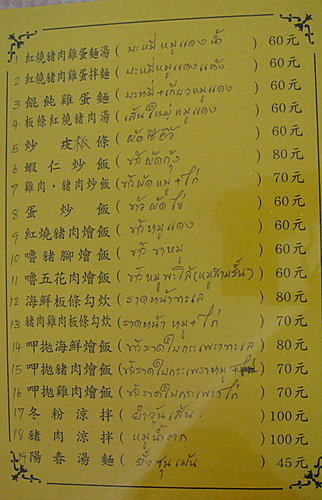 1 紅燒豬肉雞蛋麵湯 ( บะหมี่หมูแดงน้ำ ) 60元
2 紅燒豬肉雞蛋拌麵 ( บะหมี่หมูแดงแห้ง ) 60元
3 餛飩雞蛋麵 ( บะหมี่+เกี๊ยวหมูแดง ) 60元
4 板條紅燒豬肉湯 ( เส้นใหญ่หมูแดง ) 60元
5 炒 板條 ( ผัดซีอิ้ว ) 60元
6 蝦仁炒飯 ( ข้าวผัดกุ้ง ) 80元
7 雞肉·豬肉炒飯 ( ข้าวผัดหมู+ไก่ ) 70元
8 蛋炒飯 ( ข้าวผัดไข่ ) 60元
9 紅燒豬肉燴飯 ( ข้าวหมูแดง ) 60元
10 嚕豬腳燴飯 ( ข้าวขาหมู ) 60元
11 嚕五花肉燴飯 ( ข้าวหมูพะโล้(หมูสามชั้น) ) 60元
12 海鮮板條勾炊 ( ราดหน้าทะเล ) 80元
13 豬肉雞肉板條勾炊 ( ราดหน้า หมู+ไก่ ) 70元
14 呷拋海鮮燴飯 ( ข้าวราดใบกระเพราทะเล ) 80元
15 呷拋豬肉燴飯 ( ข้าวราดใบกระเพราหมู ) 70元
16 呷拋雞肉燴飯 ( ข้าวราดใบกระเพราไก่ ) 70元
17 冬粉涼拌 ( ยำวุ้นเส้น ) 100元
18 豬肉涼拌 ( หมูน้ำตก ) 100元
19 陽春湯麵 ( ) 45元